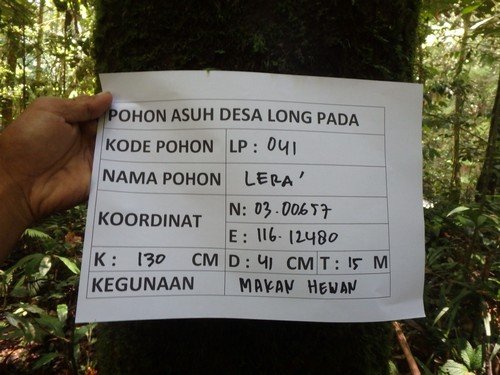 POHON ASUH DESA LONG PADA
KODE POHON LP : 041
NAMA POHON LERA'
KOORDINAT N: 03.00657
E : 116.12480
K : 130 CM D : 41 CM T : 15 M
KEGUNAAN MAKAN HEWAN